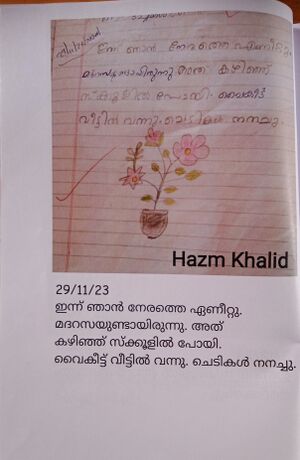 ഇന്ന് ഞാൻ നേരത്തെ ഏണീറ്റു.
മദ്രസയുണ്ടായിരുന്നു അത് കഴിഞ്ഞ്
സ്കൂളിൽ പോയി. വൈകീട്ട്
വീട്ടിൽ വന്നു. ചെടികൾ നനച്ചു.
Hazm Khalid
29/11/23
ഇന്ന് ഞാൻ നേരത്തെ ഏണീറ്റു.
മദറസയുണ്ടായിരുന്നു. അത്
കഴിഞ്ഞ് സ്ക്കൂളിൽ പോയി.
വൈകീട്ട് വീട്ടിൽ വന്നു. ചെടികൾ നനച്ചു.